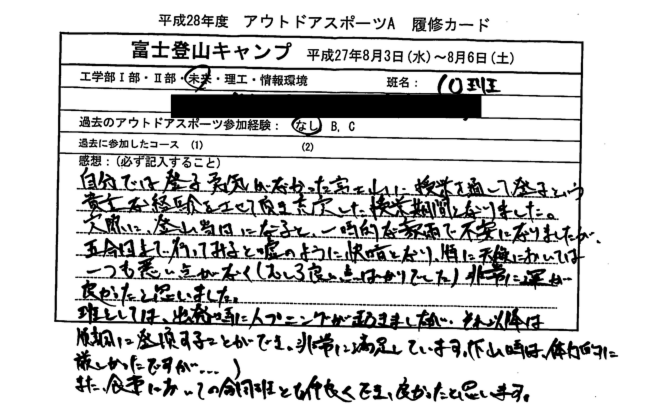 平成28年度 アウトドアスポーツA 履修カード
富士登山キャンプ 平成27年8月3日(水)~8月6日(土)
工学部Ⅰ部・Ⅱ部・未来・理工・情報環境 班名: 10班
過去のアウトドアスポーツ参加経験: なし B、C
過去に参加したコース (1) (2)
感想:(必ず記入すること)
自分では登る勇気がなかった富士山に授業を通して登るという
貴重な経験をさせて頂き充実した授業期間となりました。
実際に、登山当日になると、一時的な豪雨で不安になりましたが、
五合目まで行ってみると嘘のように快晴となり、特に天候においては
一つも悪い点がなく(むしろ良い点ばかりでした)非常に運が
良かったと思いました。
班としては、出発時にハプニングが起きましたが、それ以降は
順調に登頂することができ、非常に満足しています。(下山時は、体力的に
厳しかったですが...)
また、食事においての合同班とも仲良くでき、良かったと思います。